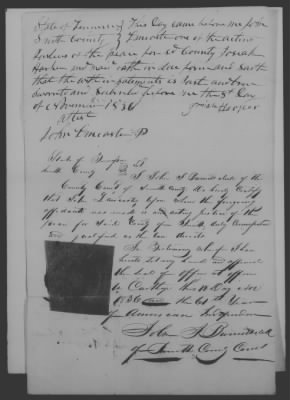 State of Tennessee } This Day came before me John
Smith County } Lancaster one of the acting
Justices of the peace for sd County Josiah
and made oath in due form and saith
that the within statements is Just and true
Sworn to and Subscribed before me this 8th Day
of November 1836 Josiah
attest
John Lancaster JP
State of Tennessee
Smith County
I John S Clerk of the
County Court of Smith County do hereby Certify
that John Lancaster before whom the foregoing
affidavit was made is and acting Justice of the
peace for Said County of Smith duly Commissioned
and qualified as the law directs
In Testimony whereof I have
hereunto Set my hand and affixed
the Seal of my Office at Office
in Carthage this Day of Nov
1836 and the 61st Year
of American Independence
John S
of Smith County Court